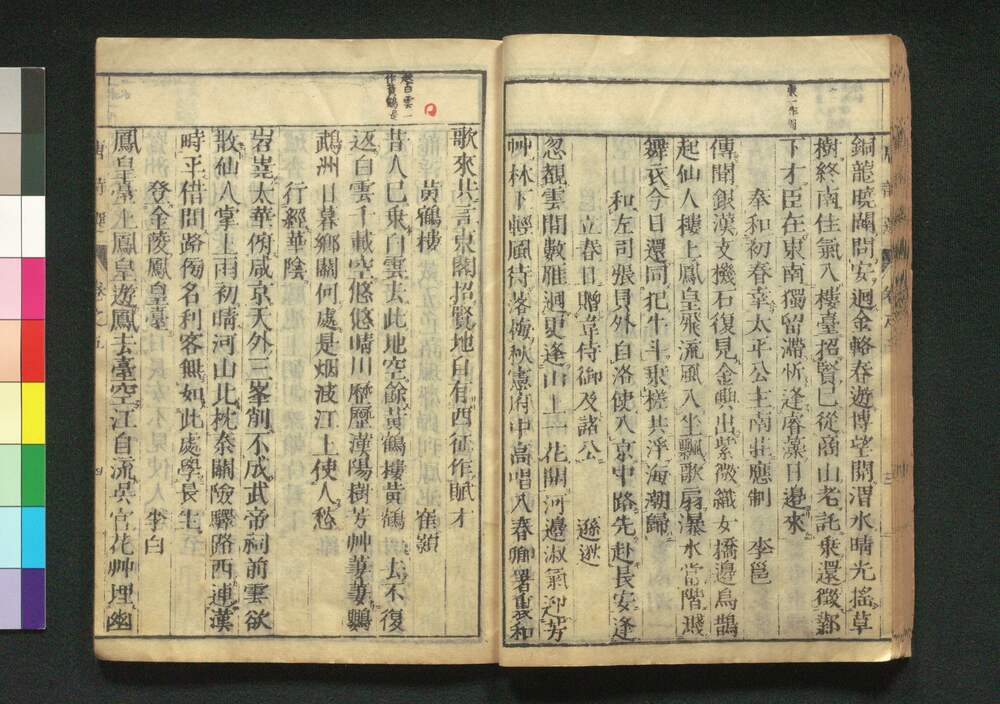 銅龍曉闢問安迴金輅春遊博望開渭水晴光搖草
樹終南佳氣入樓臺招賢已從商山老託乘還徵鄴
下才臣在東南獨留滯忻逢睿藻日邊來
奉和初春幸太平公主南莊應制 李邕
傳聞銀漢支機石復見金輿出紫微織女橋邊烏鵲
起仙人樓上鳳皇飛流風入坐飄歌扇瀑水當階濺
舞衣今日還同犯牛斗乘槎共浮海潮歸
和左司張員外自洛使入京中路先赴長安逢
立春日贈韋侍御及諸公 孫逖
忽覩雲間數雁迴更逢山上一花開河邊淑氣迎芳
艸林下輕風待落梅秋憲府中高唱入春卿署裏和
歌來共言東閣招賢地自有西征作賦才
黃鶴樓 崔顥
昔人已乘白雲去此地空餘黃鶴樓黃鶴一去不復
返白雲千載空悠悠晴川歷歷漢陽樹芳艸萋萋鸚
鵡洲日暮鄉關何處是烟波江上使人愁
行經華陰
岧嶤太華俯咸京天外三峯削不成武帝祠前雲欲
散仙人掌上雨初晴河山北枕秦關險驛路西連漢
時平借問路傍名利客無如此處學長生
登金陵鳳皇臺 李白
鳳皇臺上鳳皇遊鳳去臺空江自流吳宮花艸埋幽
唐詩選 卷之五 四